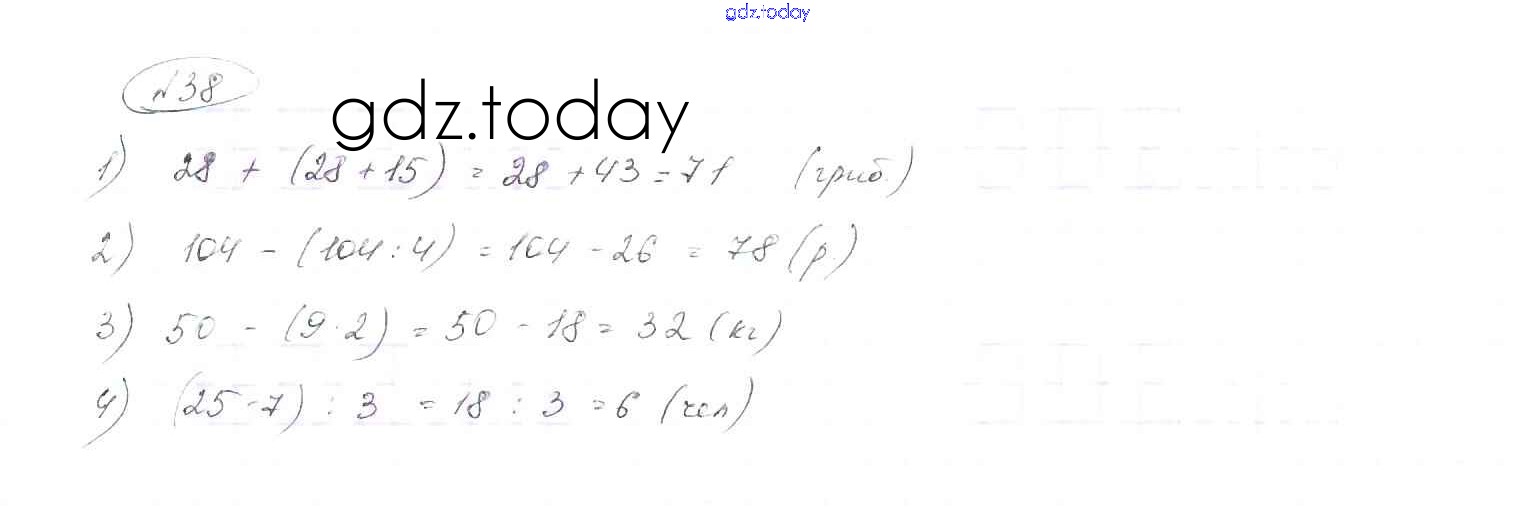 gdz.today
№38
gdz.today
1) 28 + (28 + 15) = 28 + 43 = 71 (гриб.)
2) 104 - (104 : 4) = 104 - 26 = 78 (р.)
3) 50 - (9 · 2) = 50 - 18 = 32 (кг)
4) (25 - 7) : 3 = 18 : 3 = 6 (чел)